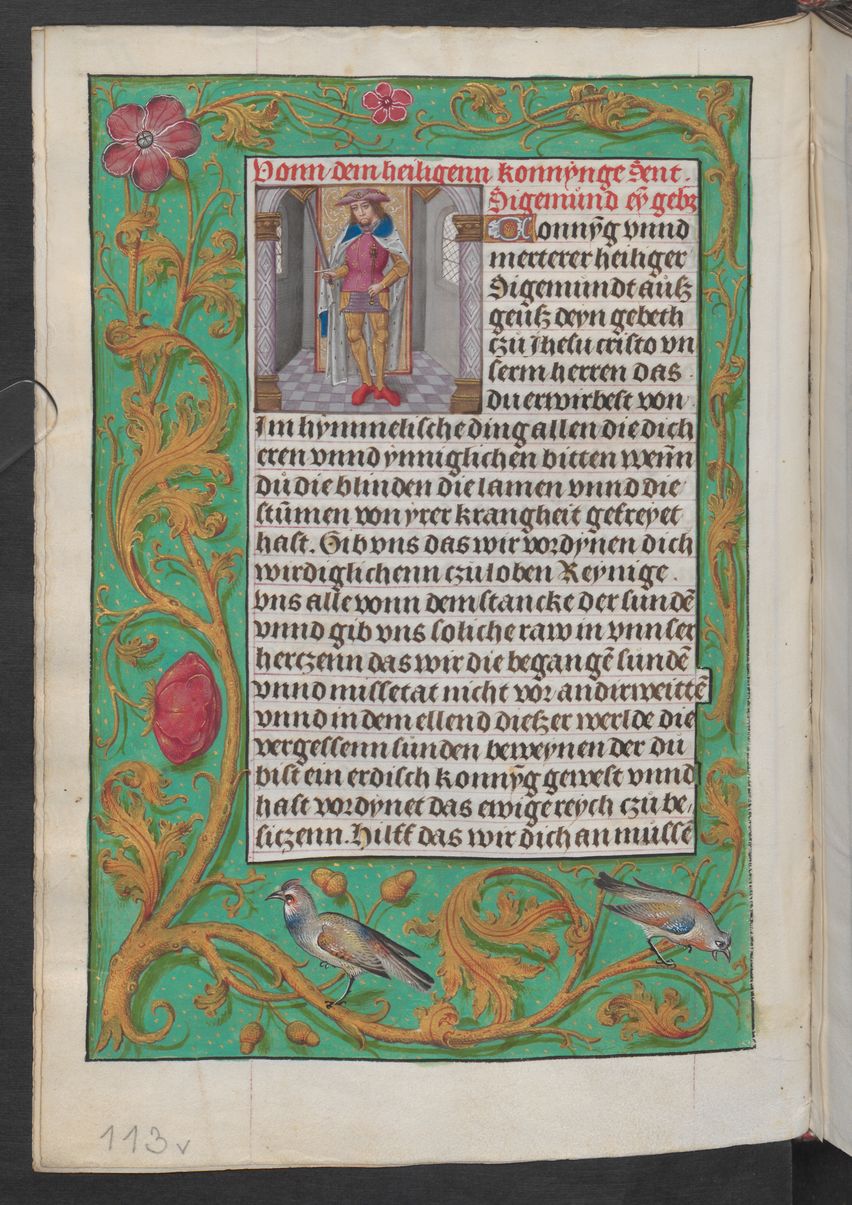 Vonn dem heiligenn konnynge Sent.
Sigemund eȳ gebz
Konnȳg vnnd
merterer heiliger
Sigemundt auſz
geuſz deyn gebeth
czu Jheſu criſto vn
ſerm herren das
du erwirbeſt von
Im hymmeliſche ding allen die dich
eren vnnd ynniglichen bitten wenn̄
du die blinden die lamen vnnd die
ſtūmen von yrer krangheit gefreyet
haſt. Gib vns das wir vordynen dich
wirdiglichenn czu loben Reynige.
vns alle vonn dem ſtancke der ſundē
vnnd gib vns ſoliche raw in vnnſer
herczenn das wir die begangē ſundē
vnnd miſſetat nicht vor andirweittē
vnnd in dem ellend dieſzer werlde die
vergeſſenn ſunden beweynen der du
biſt ein erdiſch konnȳg geweſt vnnd
haſt vordynet das ewige reych czu be/
ſiczenn. Hilff das wir dich an muſſē
113v